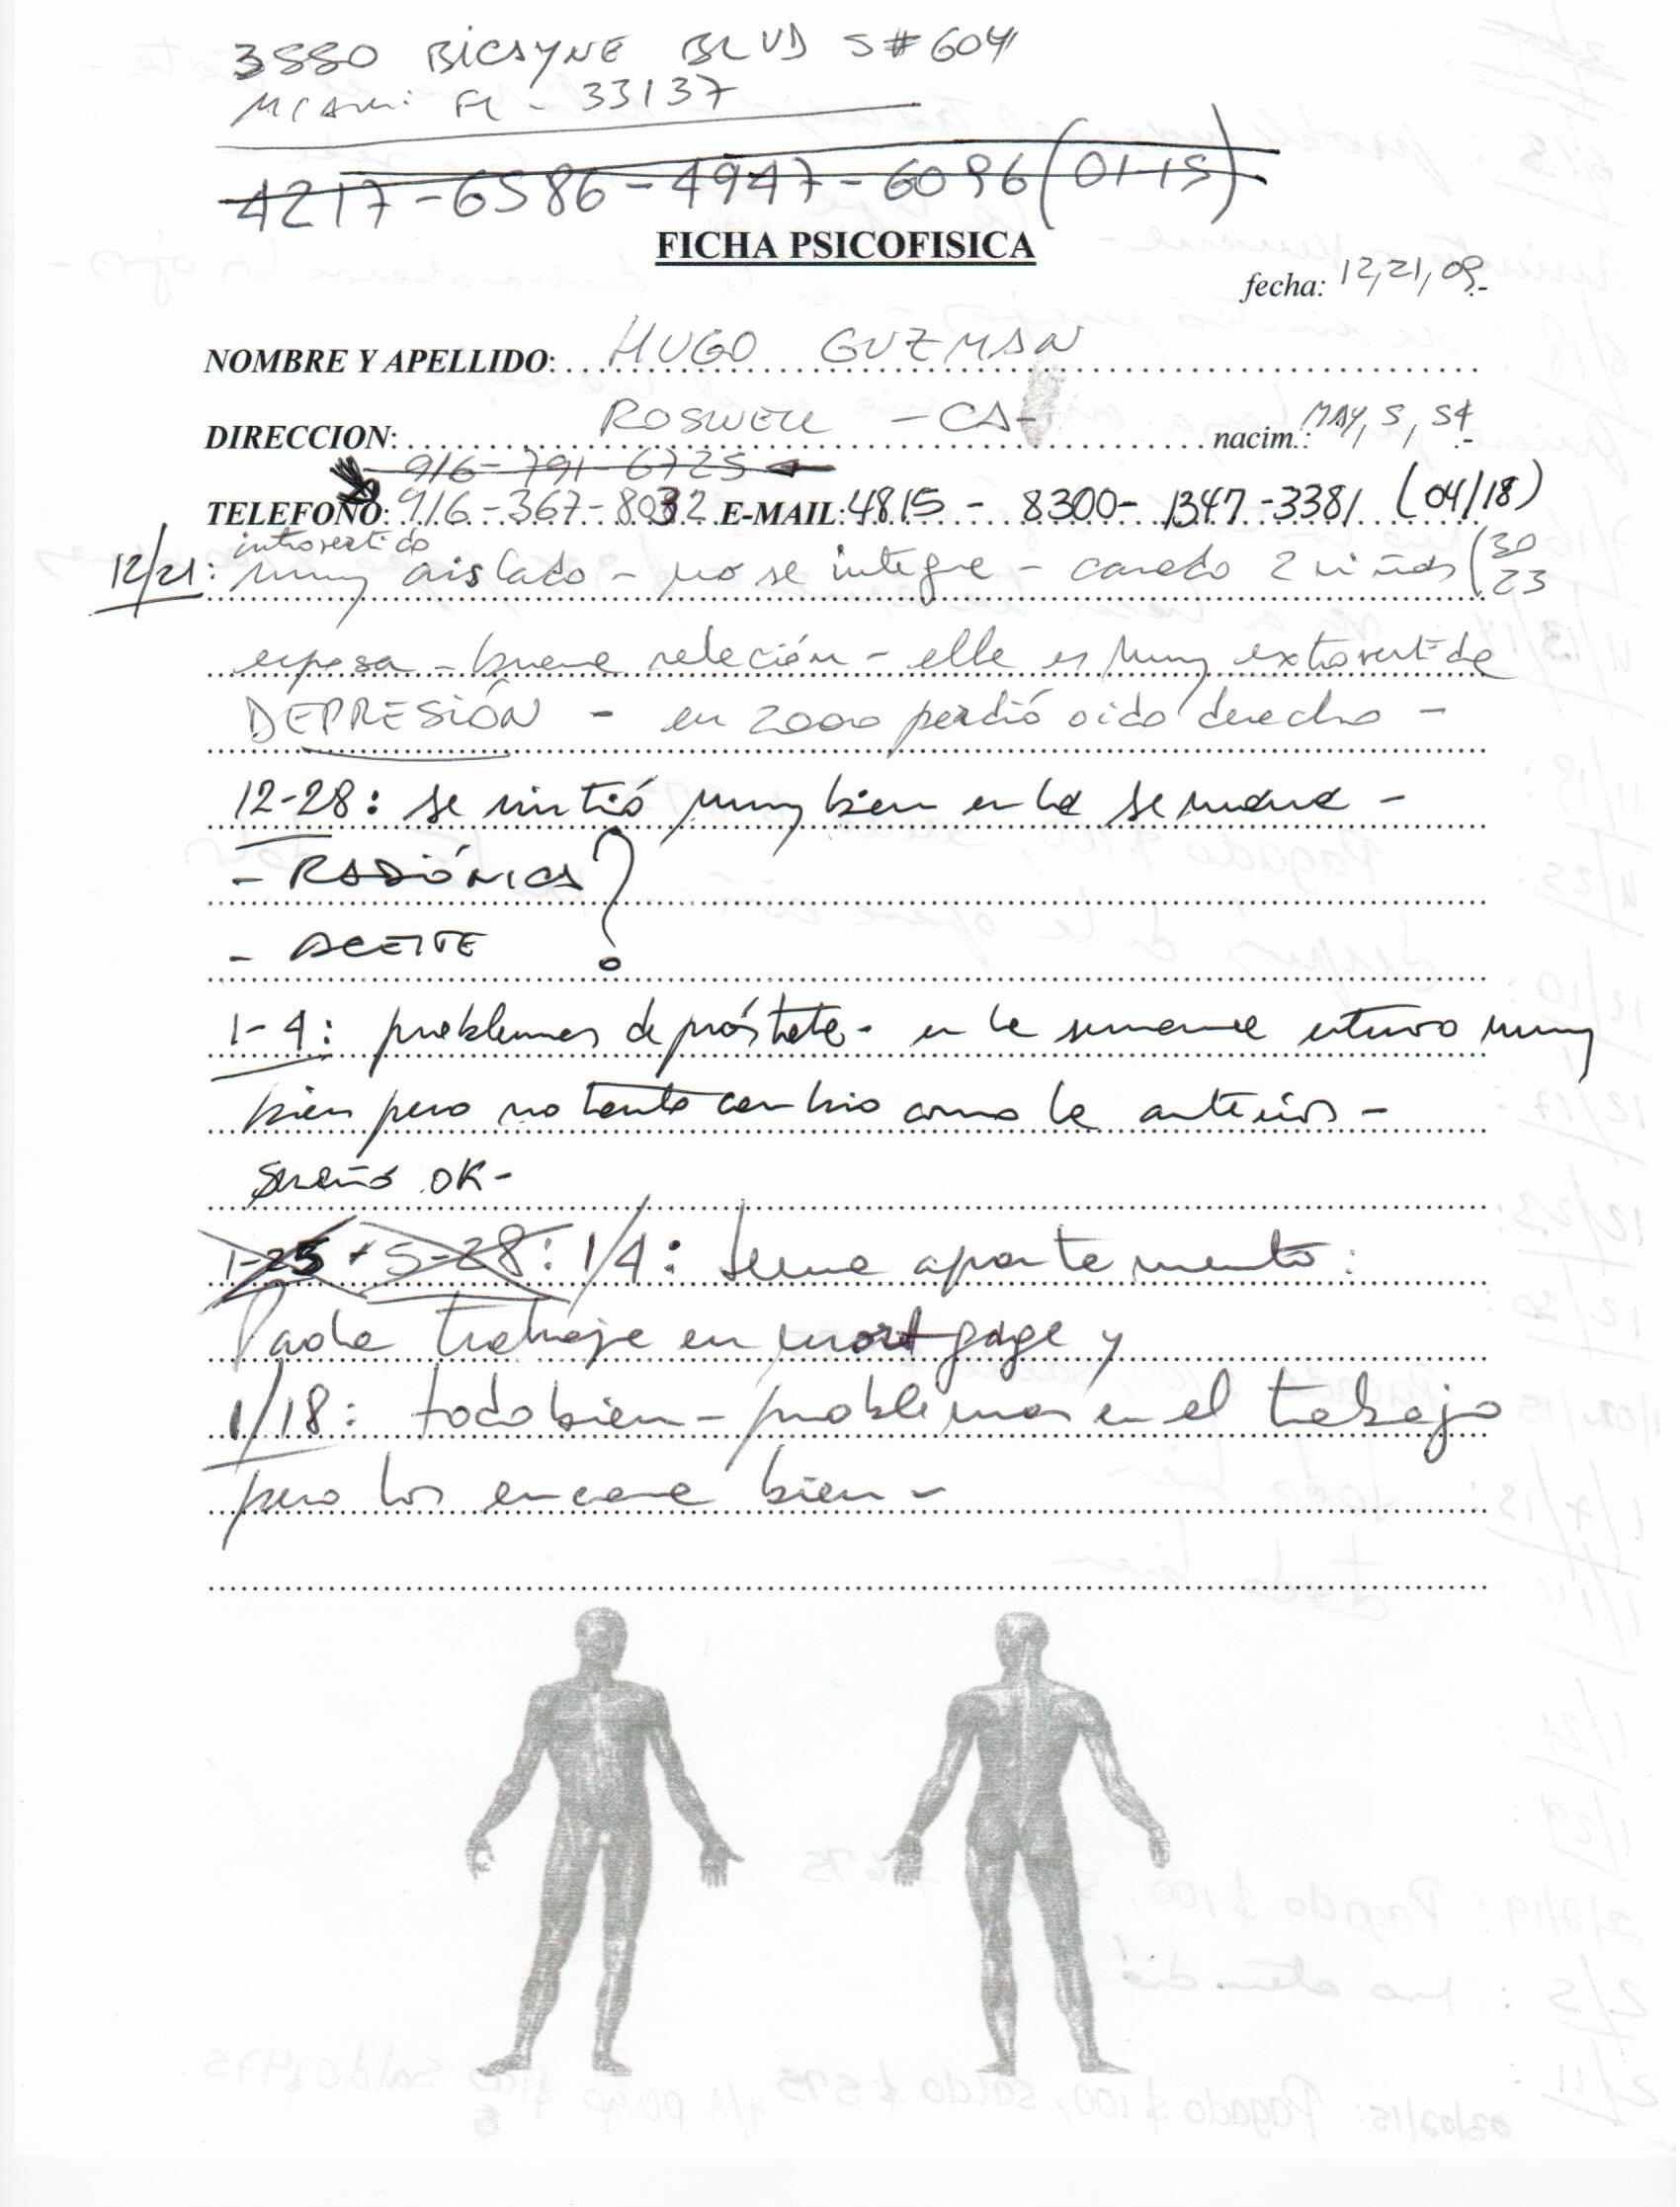 3550 BICAYNE BLVD S# 604
MIAMI FL - 33137
4217-6586-4947-6096 (01-15)
FICHA PSICOFISICA
fecha: 12,21,09.-
NOMBRE Y APELLIDO: HUGO GUZMAN
DIRECCION: ROSWELL -CA- nacim.: MAY, 5, 54
916-791-6725
TELEFONO: 916-367-8032 E-MAIL: 4815 - 8300 - 1347 - 3381 (04/18)
introvertido
12/21: muy aislado - no se integra - casado 2 niños (30
23
esposa - buena relación - ella es muy extrovertida
DEPRESIÓN - en 2000 perdió oido derecho -
12-28: se sintió muy bien en la semana -
- RADIÓNICA ?
- ACEITE
1-4: problemas de próstata - en la semana estuvo muy
bien pero no tanto cambio como la anterior -
Sueño OK -
1-25 + 5-28: 1/4: apartamento:
trabaja en mortgage y
1/18: todo bien - problemas en el trabajo
pero los encara bien -